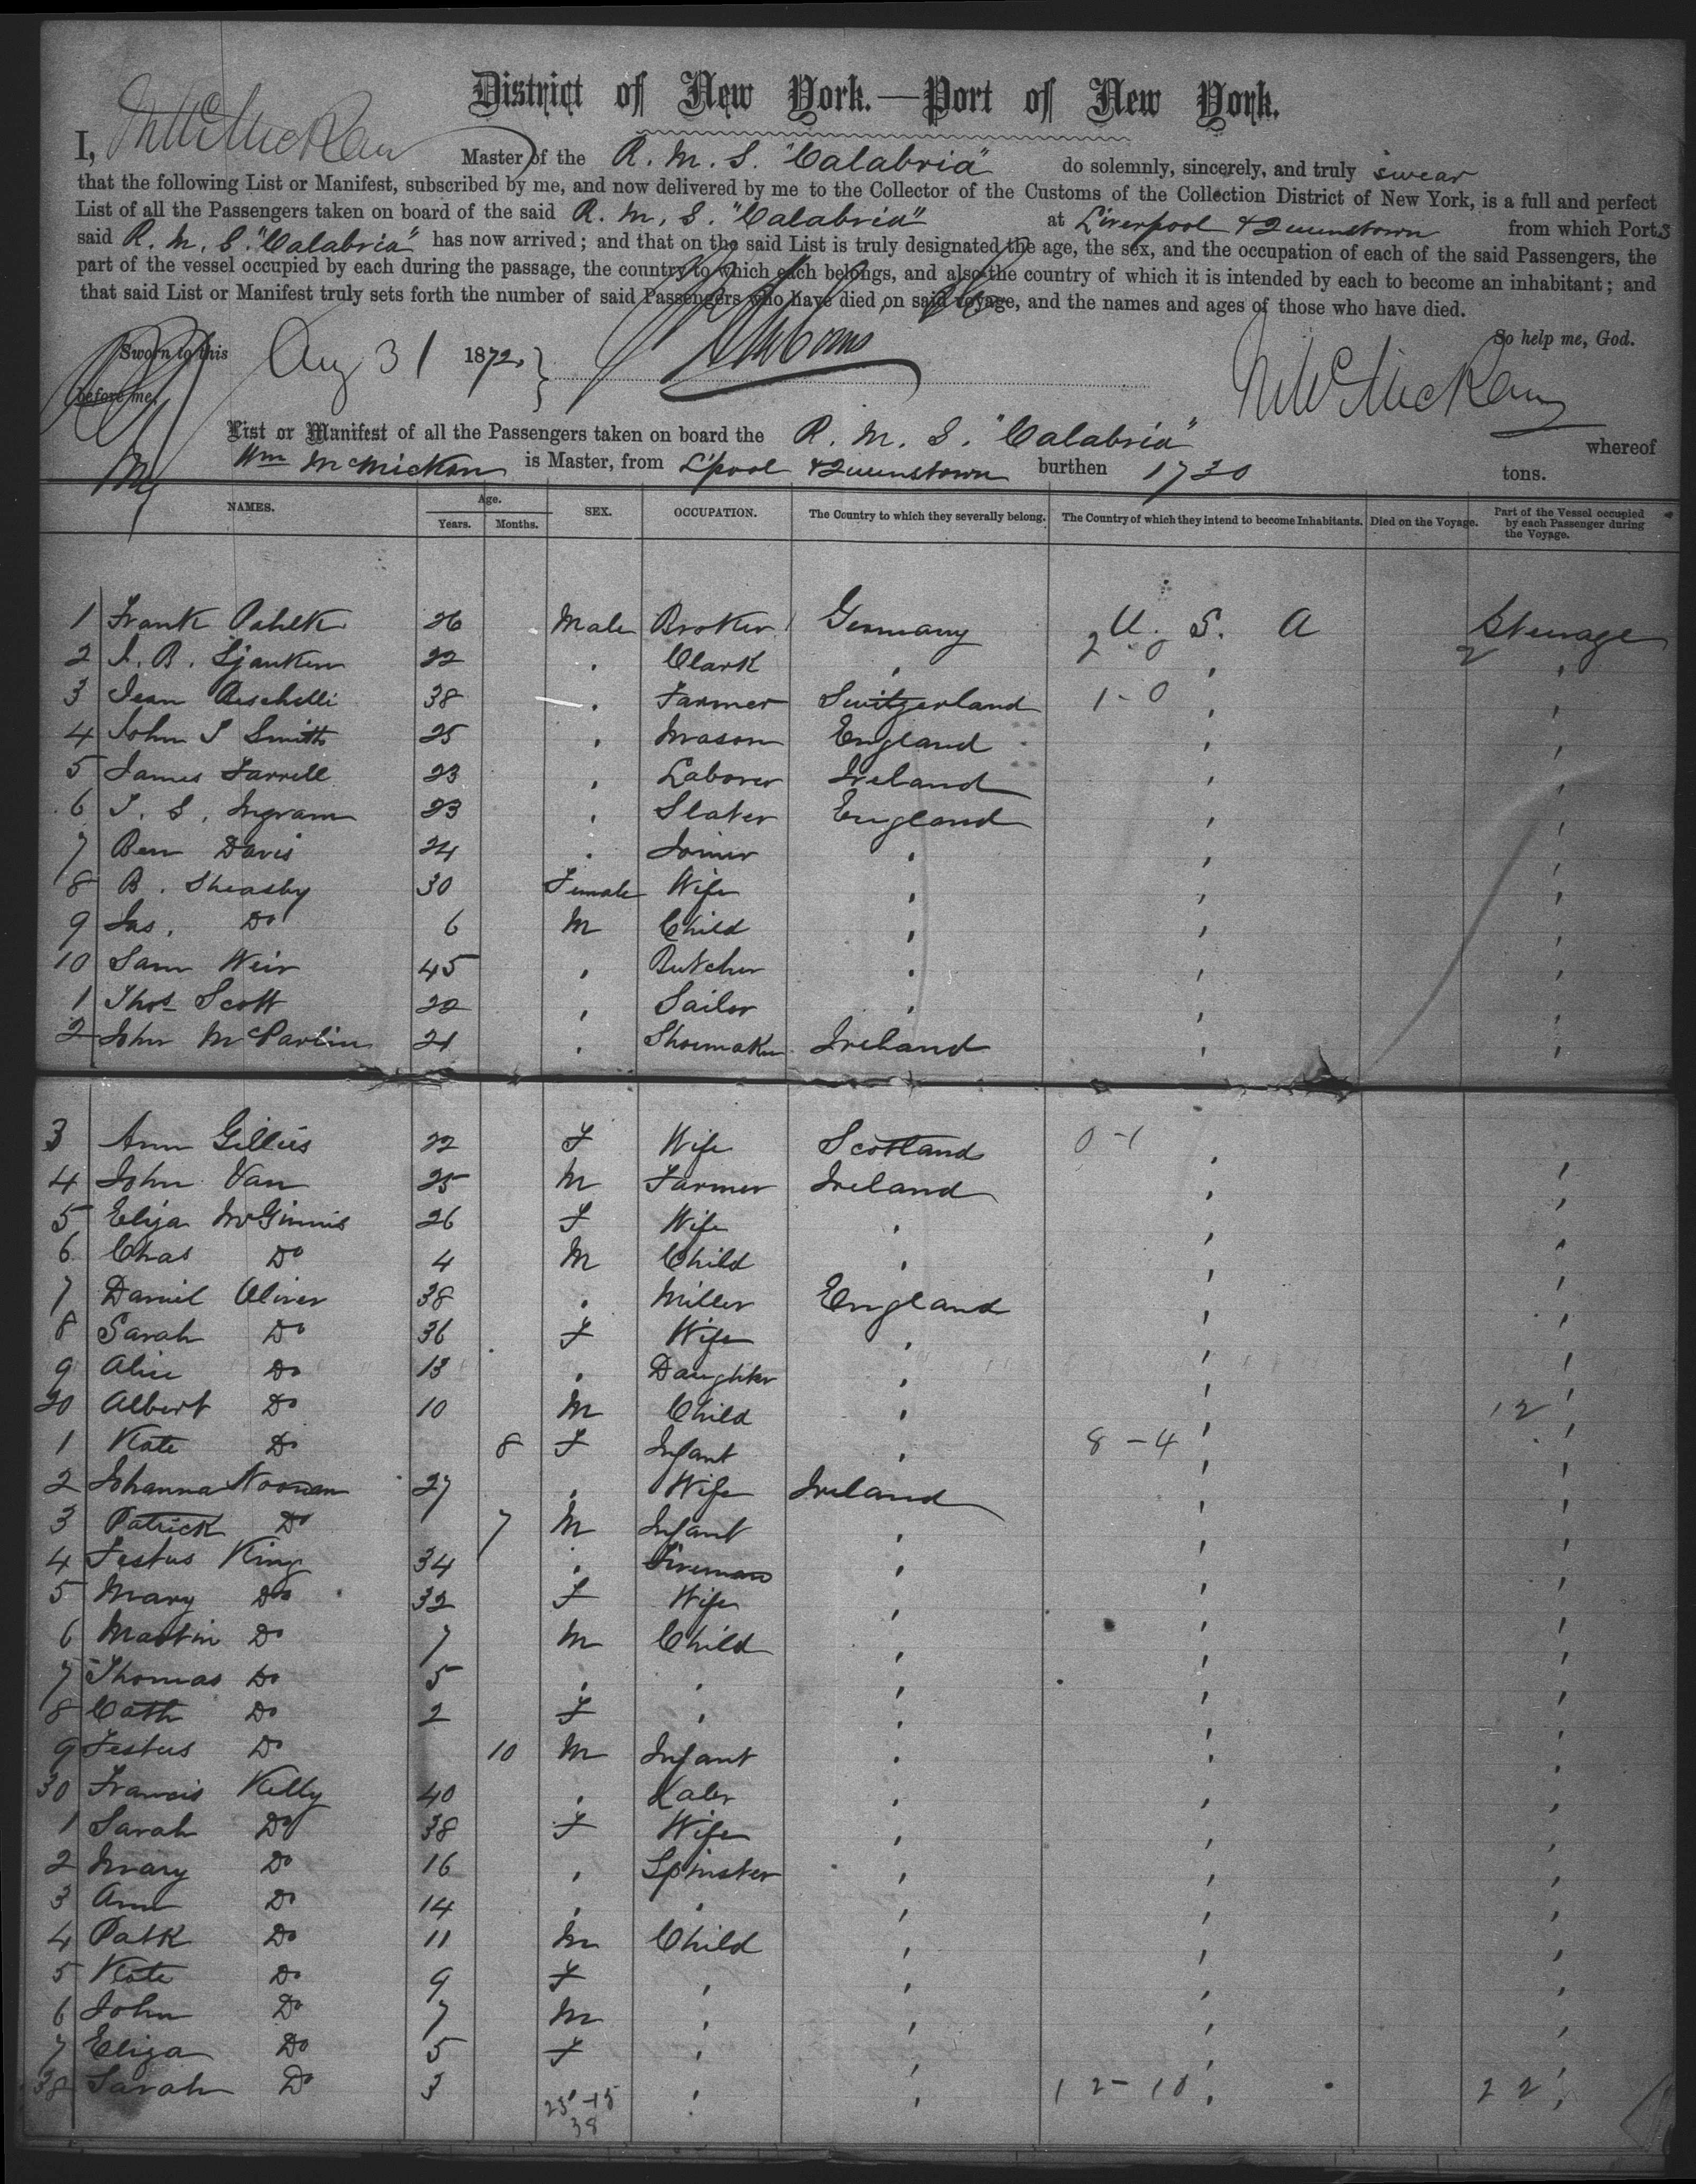 District of New York.—Port of New York.
I, Master of the R. M. S. "Calabria" do solemnly, sincerely, and truly swear
that the following List or Manifest, subscribed by me, and now delivered by me to the Collector of the Customs of the Collection District of New York, is a full and perfect
List of all the Passengers taken on board of the said R. M. S. "Calabria" at Liverpool & Queenstown from which Ports
said R. M. S. "Calabria" has now arrived; and that on the said List is truly designated the age, the sex, and the occupation of each of the said Passengers, the
part of the vessel occupied by each during the passage, the country to which each belongs, and also the country of which it is intended by each to become an inhabitant; and
that said List or Manifest truly sets forth the number of said Passengers who have died on said voyage, and the names and ages of those who have died.
So help me, God.
Sworn to this Aug 31 1872.
before me,
List or Manifest of all the Passengers taken on board the R. M. S. "Calabria" whereof
Wm McMickan is Master, from L'pool & Queenstown burthen 1730 tons.
NAMES. Age. Years. Months. SEX. OCCUPATION. The Country to which they severally belong. The Country of which they intend to become Inhabitants. Died on the Voyage. Part of the Vessel occupied by each Passenger during the Voyage.
1 Frank 26 Male Broker Germany U. S. A Steerage
2 22 " Clark " 2-0 " 2 "
3 Jean 38 " Farmer Switzerland 1-0 " "
4 John S Smith 25 " Mason England " "
5 James Farrell 23 " Laborer Ireland " "
6 J. S. Ingram 23 " Slater England " "
7 Ben Davis 24 " Joiner " " "
8 B. Sheasby 30 Female Wife " " "
9 Jas. Do 6 M Child " " "
10 Sam Weir 45 " Butcher " " "
1 Thos Scott 22 " Sailor " " "
2 John McParlin 21 " Shoemaker Ireland " "
3 Ann Gillies 22 F Wife Scotland 0-1 " "
4 John Van 25 M Farmer Ireland " "
5 Eliza McGinnis 26 F Wife " " "
6 Chas Do 4 M Child " " "
7 Daniel Oliver 38 " Miller England " "
8 Sarah Do 36 F Wife " " "
9 Alice Do 13 " Daughter " " "
20 Albert Do 10 M Child " " 12 "
1 Kate Do 8 F Infant " 8-4 " "
2 Johanna Noonan 27 " Wife Ireland " "
3 Patrick Do 7 M Infant " " "
4 Festus King 34 " Fireman " " "
5 Mary Do 32 F Wife " " "
6 Martin Do 7 M Child " " "
7 Thomas Do 5 " " " " "
8 Cath Do 2 F " " " "
9 Festus Do 10 M Infant " " "
30 Francis Kelly 40 " Labr " " "
1 Sarah Do 38 F Wife " " "
2 Mary Do 16 " Spinster " " "
3 Ann Do 14 " " " " "
4 Patk Do 11 M Child " " "
5 Kate Do 9 F " " " "
6 John Do 7 M " " " "
7 Eliza Do 5 F " " " "
38 Sarah Do 3 " " 12-10 " 22 "
23-15
38